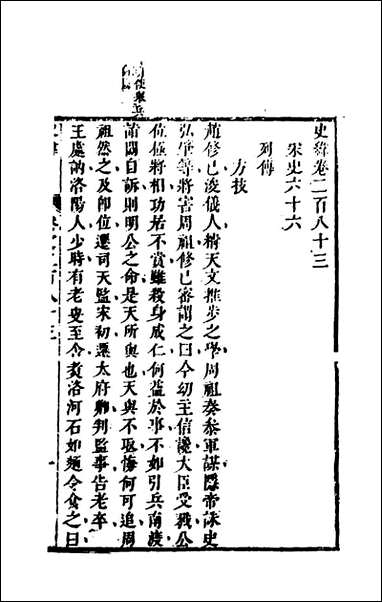 史緯卷二百八十三
宋史六十六
列傳
方技
趙修已浚儀人精天文推步之學周祖奏參軍謀隱帝誅史
弘肇等將害周祖修已審謂之曰今幼主信讒大臣受戮公
位極將相功若不賞雖殺身成仁何益於事不如引兵南渡
詣闕自訴則明公之命是天所與也天與不取悔何可追周
祖然之及卽位遷司天監宋初遷太府卿判監事告老卒
王處訥洛陽人少時有老叟至舍煑洛河石如麵令食之曰